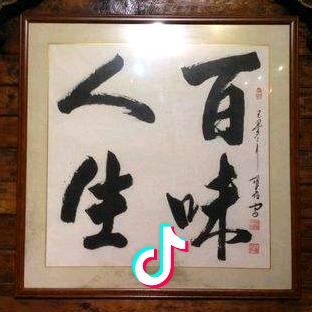 百味
人生